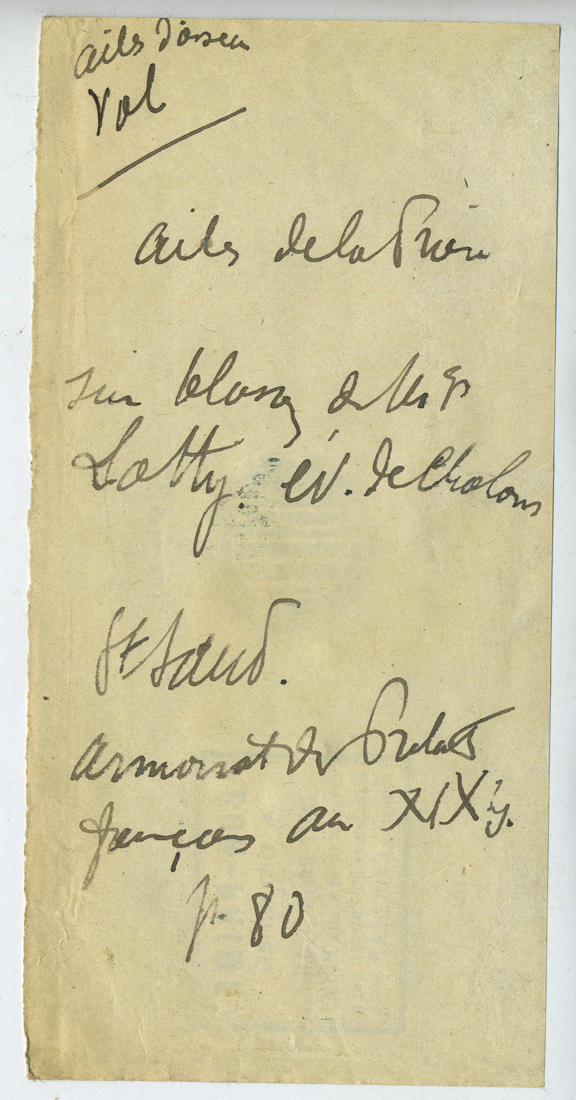 ailes d'oiseau
Vol
ailes de la Prière
sur blason de Mgr
Latty. év. de Chalons
St Saud.
Armorial des Prélats
français au XIXe s.
p. 80